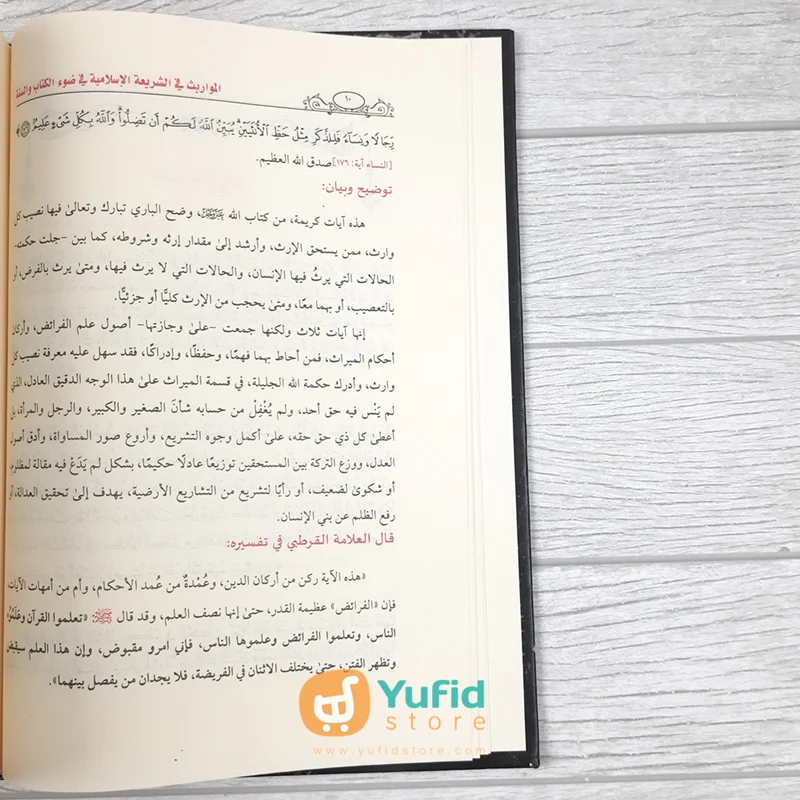 المواريث في الشريعة الإسلامية في ضوء الكتاب والسنة
١٠
رِّجَالًا وَنِسَآءً فَلِلذَّكَرِ مِثْلُ حَظِّ ٱلْأُنثَيَيْنِ يُبَيِّنُ ٱللَّهُ لَكُمْ أَن تَضِلُّوا۟ وَٱللَّهُ بِكُلِّ شَىْءٍ عَلِيمٌۢ ﴾
[النساء آية: ١٧٦] صدق الله العظيم.
توضيح وبيان:
هذه آيات كريمة، من كتاب الله عَزَّوَجَلَّ، وضح الباري تبارك وتعالىٰ فيها نصيب كل
وارث، ممن يستحق الإرث، وأرشد إلىٰ مقدار إرثه وشروطه، كما بين -جلت حكمته-
الحالات التي يرثُ فيها الإنسان، والحالات التي لا يرث فيها، ومتىٰ يرث بالفرض، أو
بالتعصيب، أو بهما معًا، ومتىٰ يحجب من الإرث كليًّا أو جزئيًّا.
إنها آيات ثلاث ولكنها جمعت -علىٰ وجازتها- أصول علم الفرائض، وأركان
أحكام الميراث، فمن أحاط بهما فهمًا، وحفظًا، وإدراكًا، فقد سهل عليه معرفة نصيب كل
وارث، وأدرك حكمة الله الجليلة، في قسمة الميراث علىٰ هذا الوجه الدقيق العادل، الذي
لم يَنْس فيه حق أحد، ولم يُغْفِلْ من حسابه شأنَ الصغير والكبير، والرجل والمرأة، بل
أعطىٰ كل ذي حق حقه، علىٰ أكمل وجوه التشريع، وأروع صور المساواة، وأدق أصول
العدل، ووزع التركة بين المستحقين توزيعًا عادلًا حكيمًا، بشكل لم يَدَعْ فيه مقالة لمظلوم،
أو شكوىٰ لضعيف، أو رأيًا لتشريع من التشاريع الأرضية، يهدف إلىٰ تحقيق العدالة، أو
رفع الظلم عن بني الإنسان.
قال العلامة القرطبي في تفسيره:
«هذه الآية ركن من أركان الدين، وعُمْدةٌ من عُمد الأحكام، وأم من أمهات الآيات،
فإن «الفرائض» عظيمة القدر، حتىٰ إنها نصف العلم، وقد قال ﷺ «تعلموا القرآن وعَلِّمُوْهُ
الناس، وتعلموا الفرائض وعلموها الناس، فإني امرو مقبوض، وإن هذا العلم سيقبض
وتظهر الفتن، حتىٰ يختلف الاثنان في الفريضة، فلا يجدان من يفصل بينهما».
Yufid
store
www.yufidstore.com